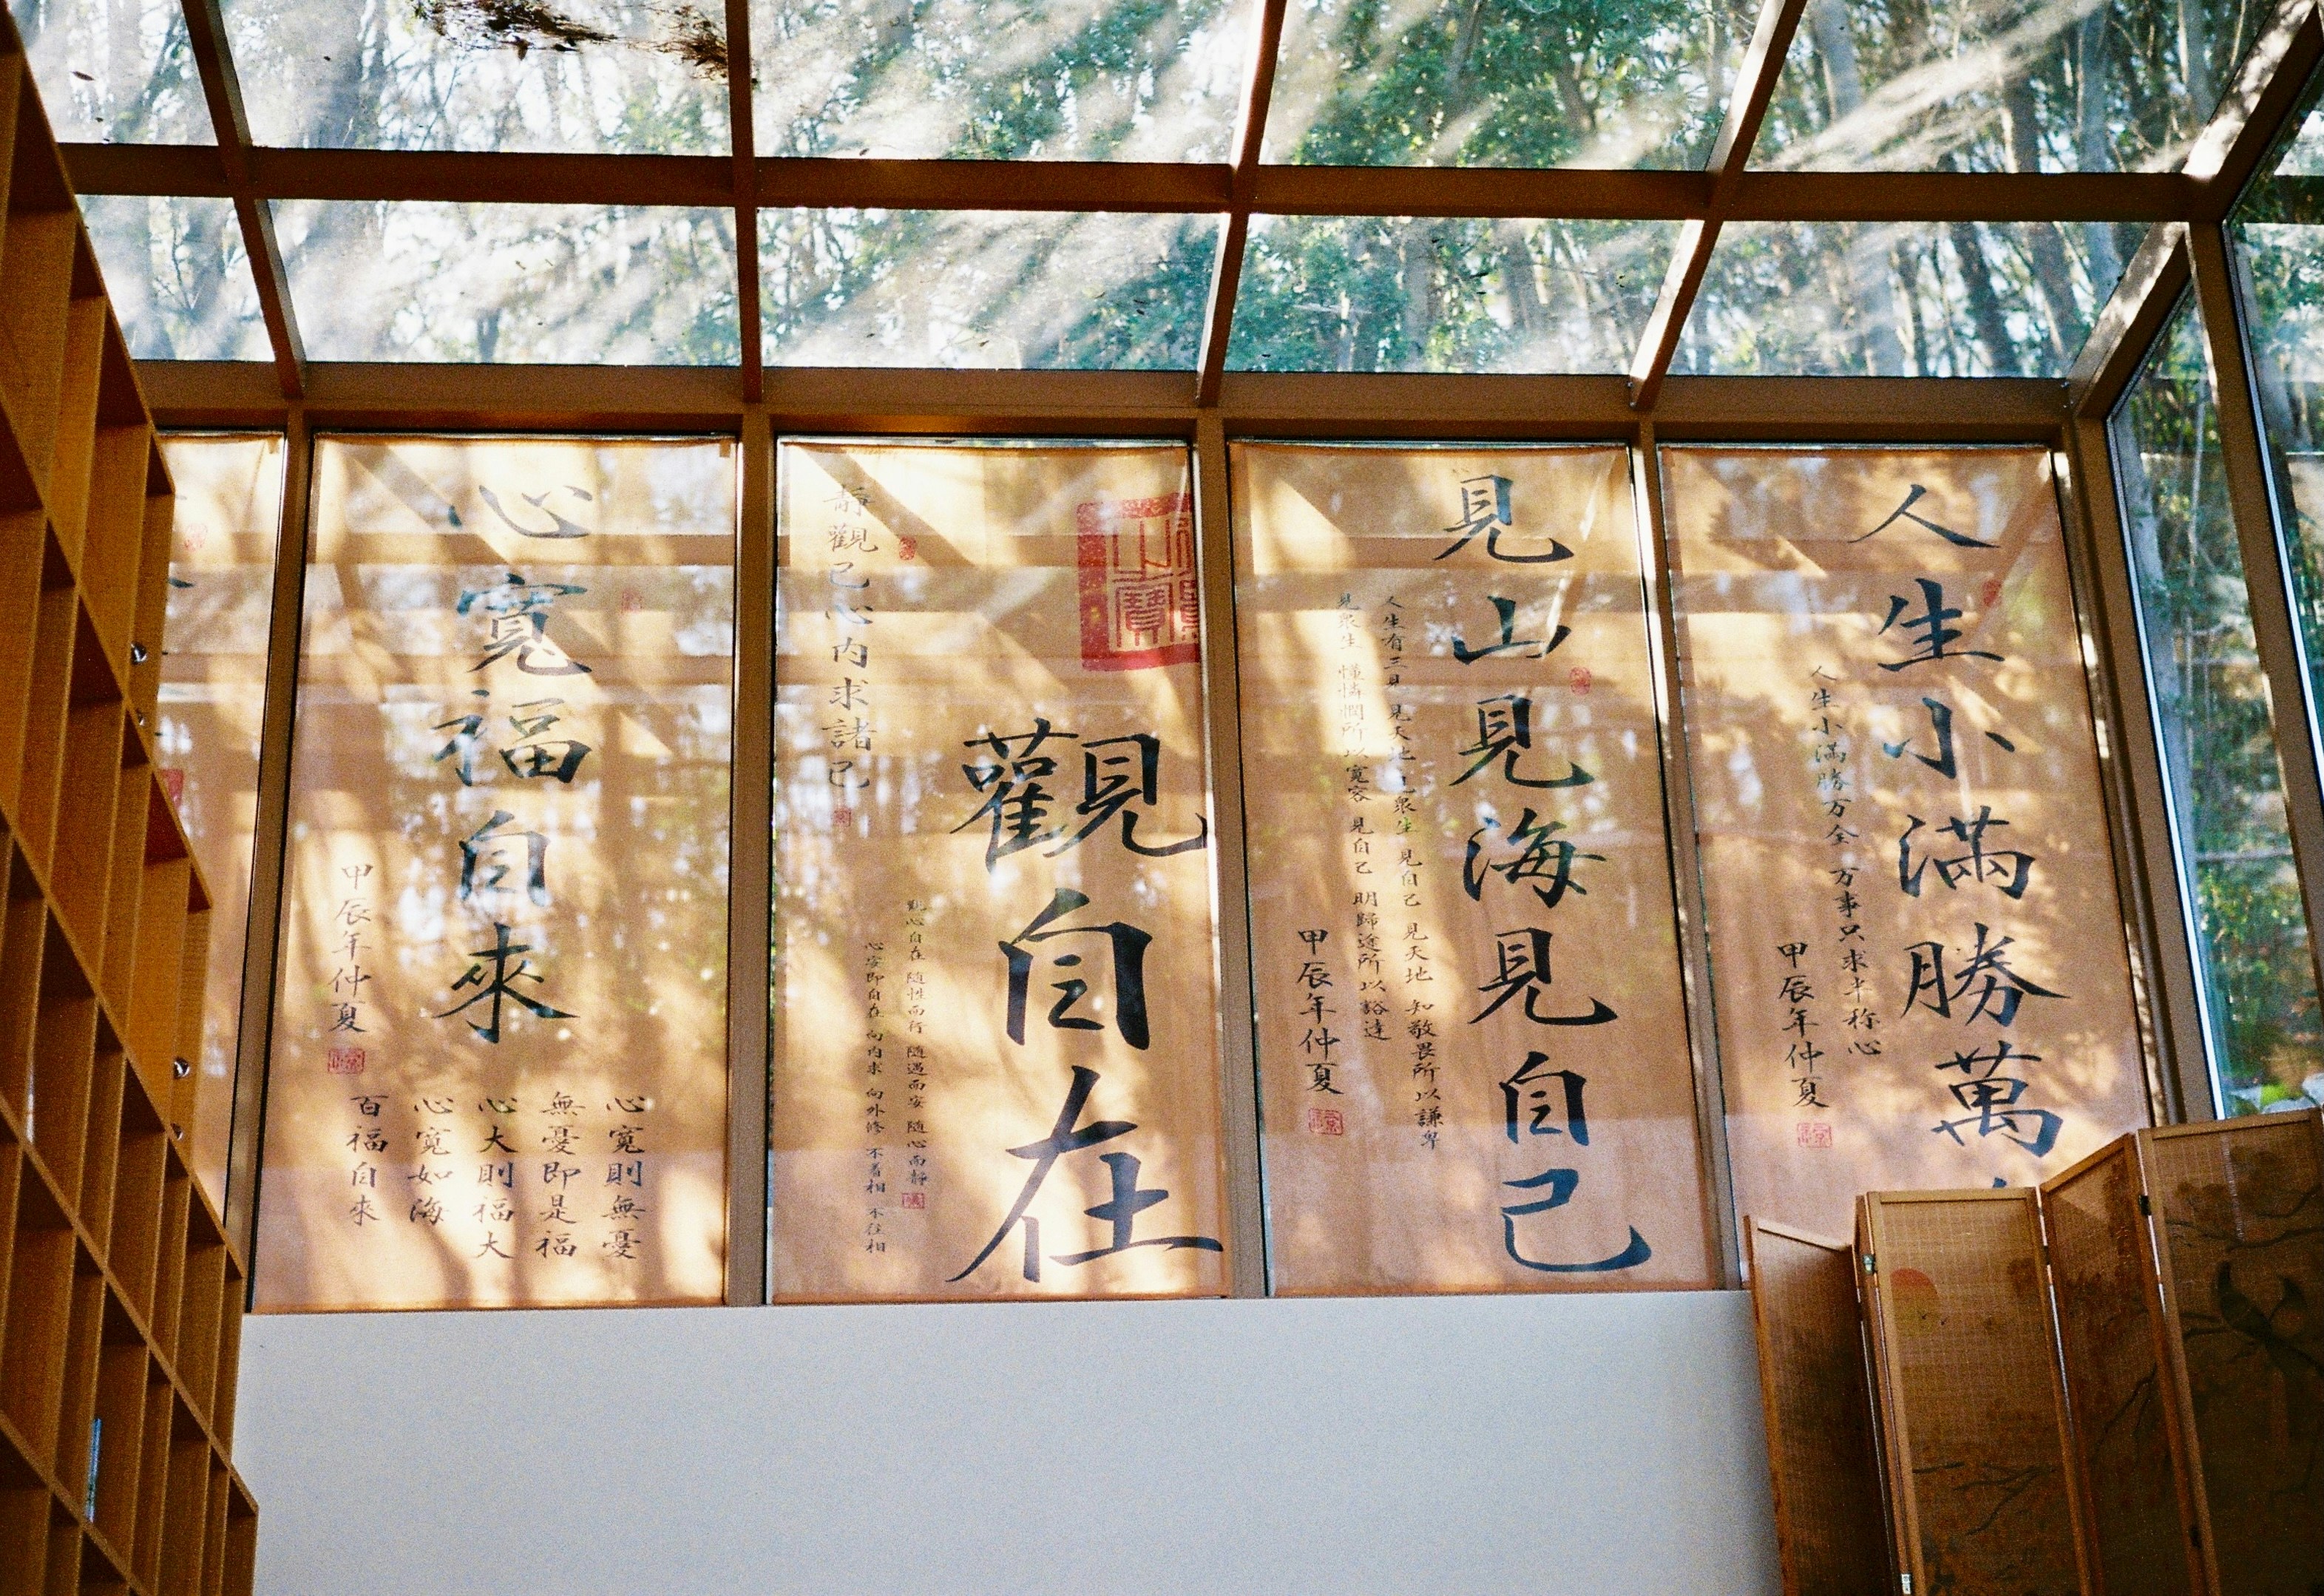 人生小滿勝萬
人生小滿勝万全 万事只求半称心
甲辰年仲夏
見山見海見自己
人生有三見 見天地 見衆生 見自己 見天地 知敬畏所以謙卑
見衆生 懂憐憫所以寬容 見自己 明歸途所以豁達
甲辰年仲夏
觀自在
觀心自在 隨性而行 隨遇而安 隨心而靜
心安即自在 向内求 向外修 不着相 不住相
靜觀己心内求諸己
心寬福自來
心寬則無憂
無憂即是福
心大則福大
心寬如海
百福自來
甲辰年仲夏